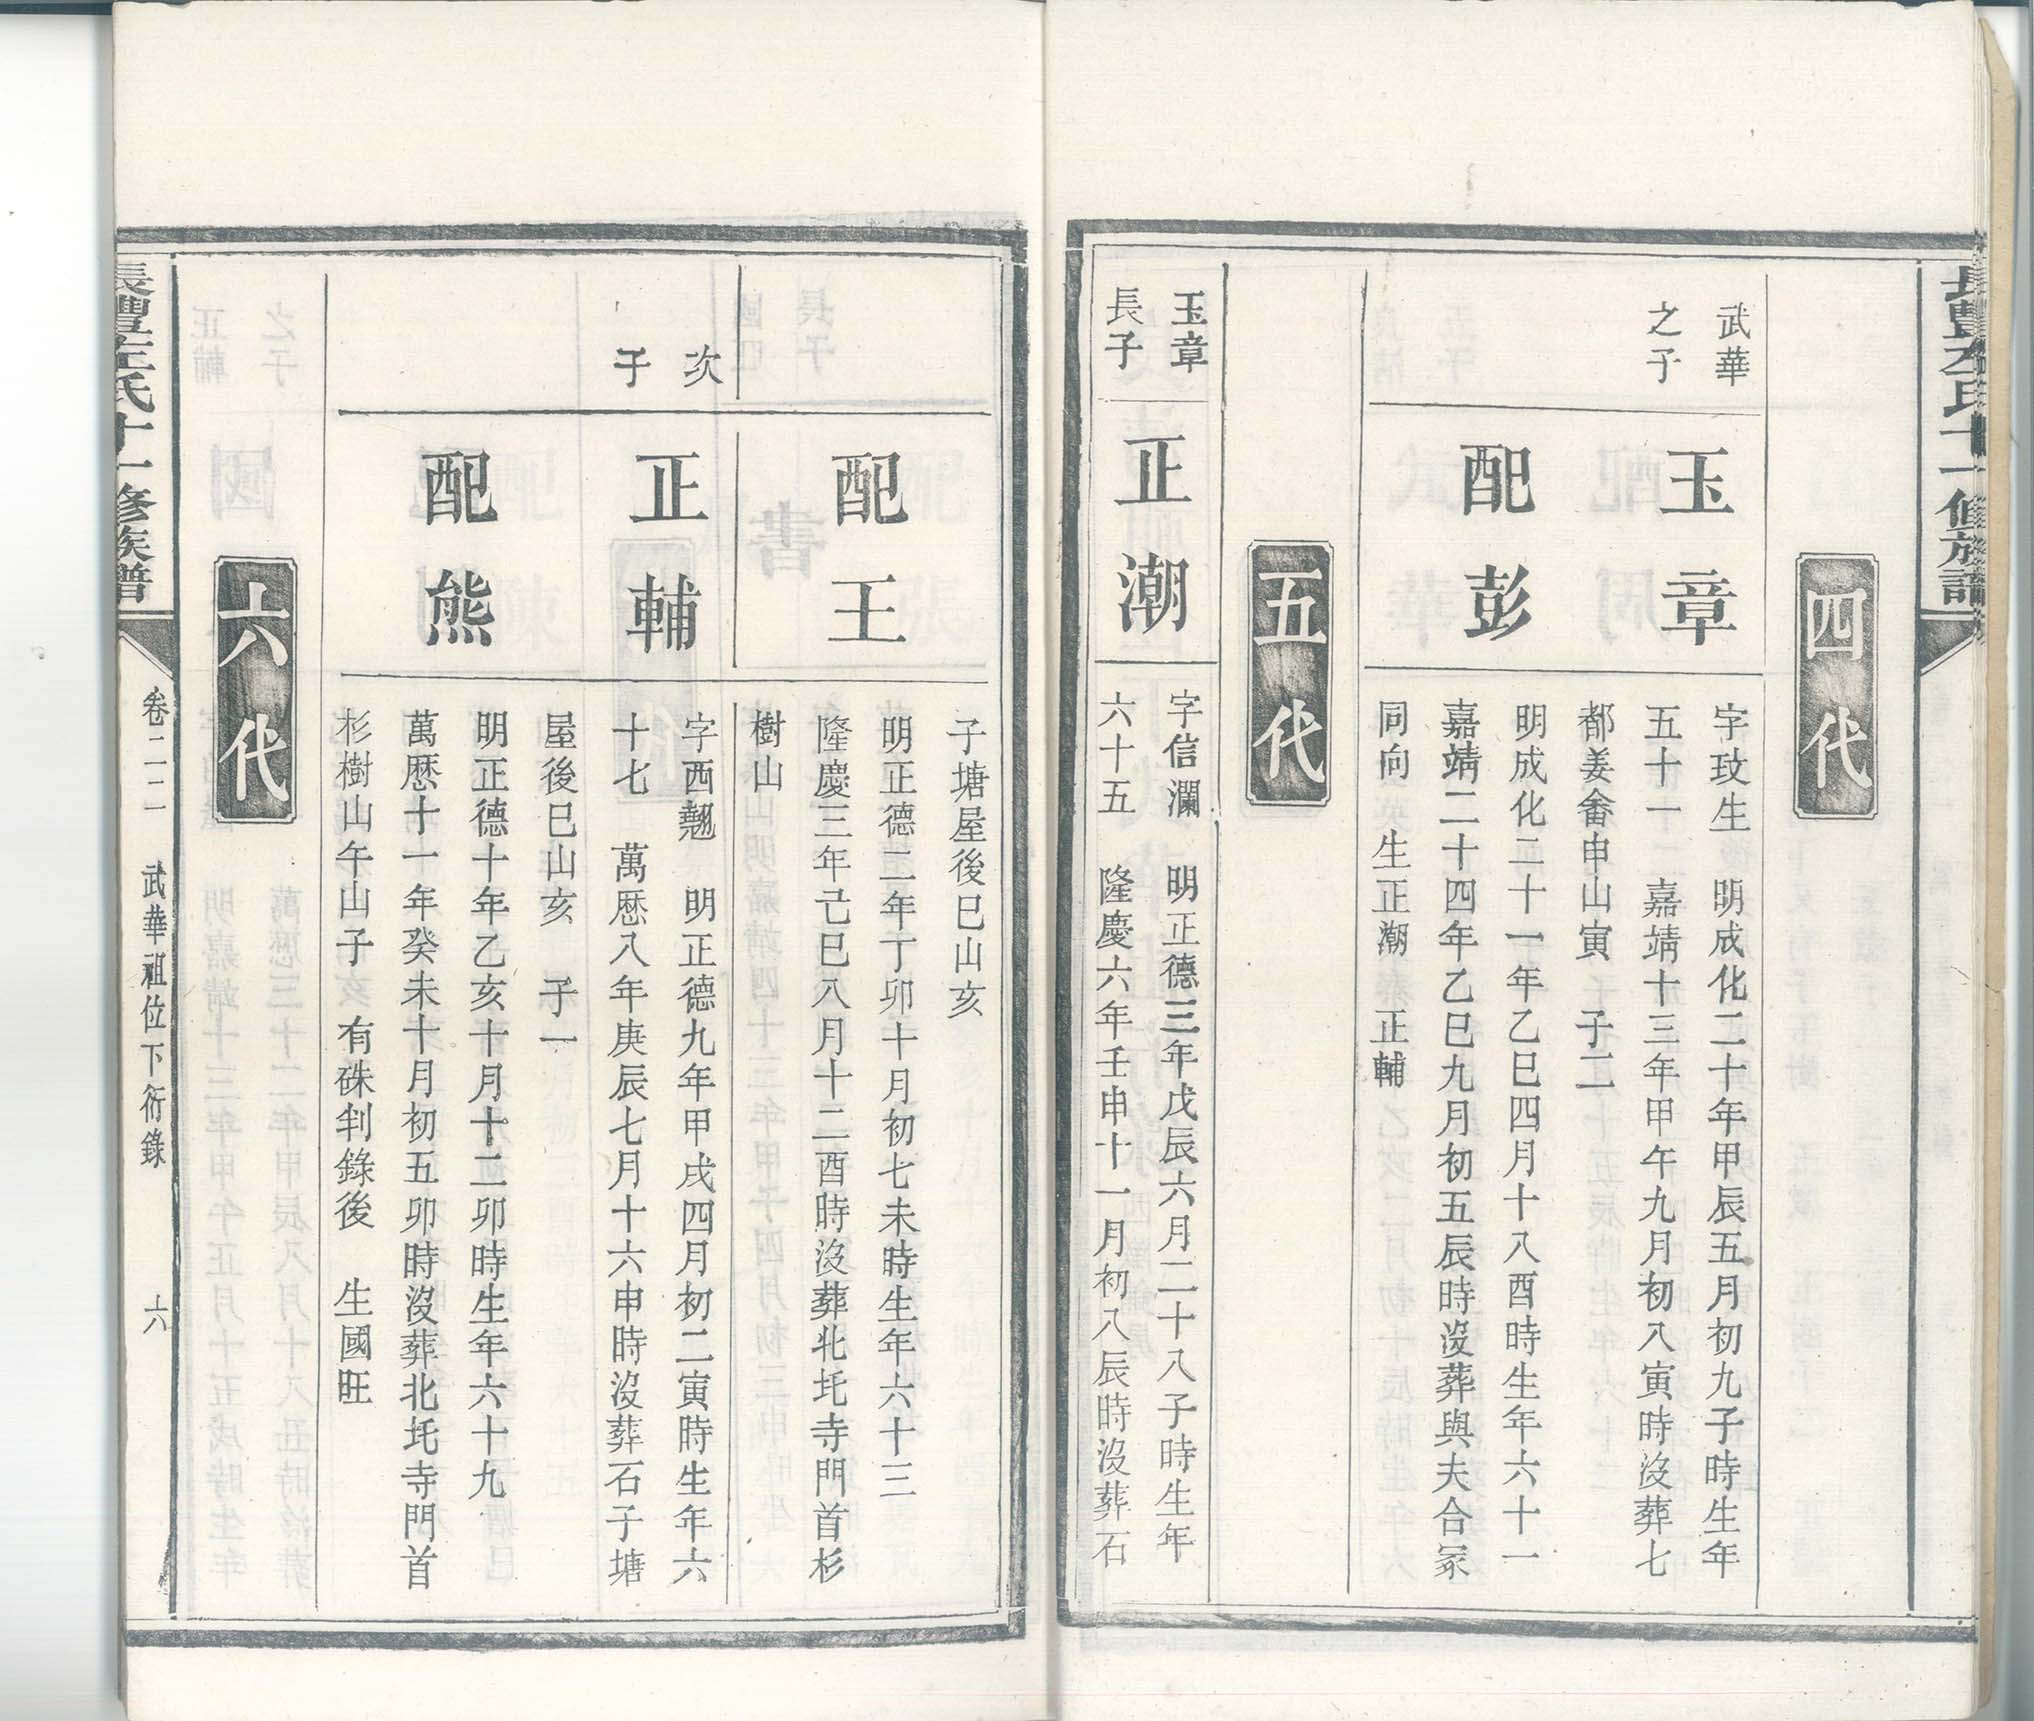 長豐左氏十一修族譜
四代
武華
之子
玉章
字玟生　明成化二十年甲辰五月初九子時生年
五十一　嘉靖十三年甲午九月初八寅時沒葬七
都姜畬申山寅　子二
配彭
明成化二十一年乙巳四月十八酉時生年六十一
嘉靖二十四年乙巳九月初五辰時沒葬與夫合冢
同向　生正潮　正輔
五代
玉章
長子
正潮
字信瀾　明正德三年戊辰六月二十八子時生年
六十五　隆慶六年壬申十一月初八辰時沒葬石
子塘屋後巳山亥
配王
明正德二年丁卯十月初七未時生年六十三
隆慶三年己巳八月十二酉時沒葬北圫寺門首杉
樹山
次
子
正輔
字西翹　明正德九年甲戌四月初二寅時生年六
十七　萬厯八年庚辰七月十六申時沒葬石子塘
屋後巳山亥　子一
配熊
明正德十年乙亥十月十二卯時生年六十九
萬厯十一年癸未十月初五卯時沒葬北圫寺門首
杉樹山午山子　有硃判錄後　生國旺
六代
長豐左氏十一修族譜
卷二二　武華祖位下衍錄　六